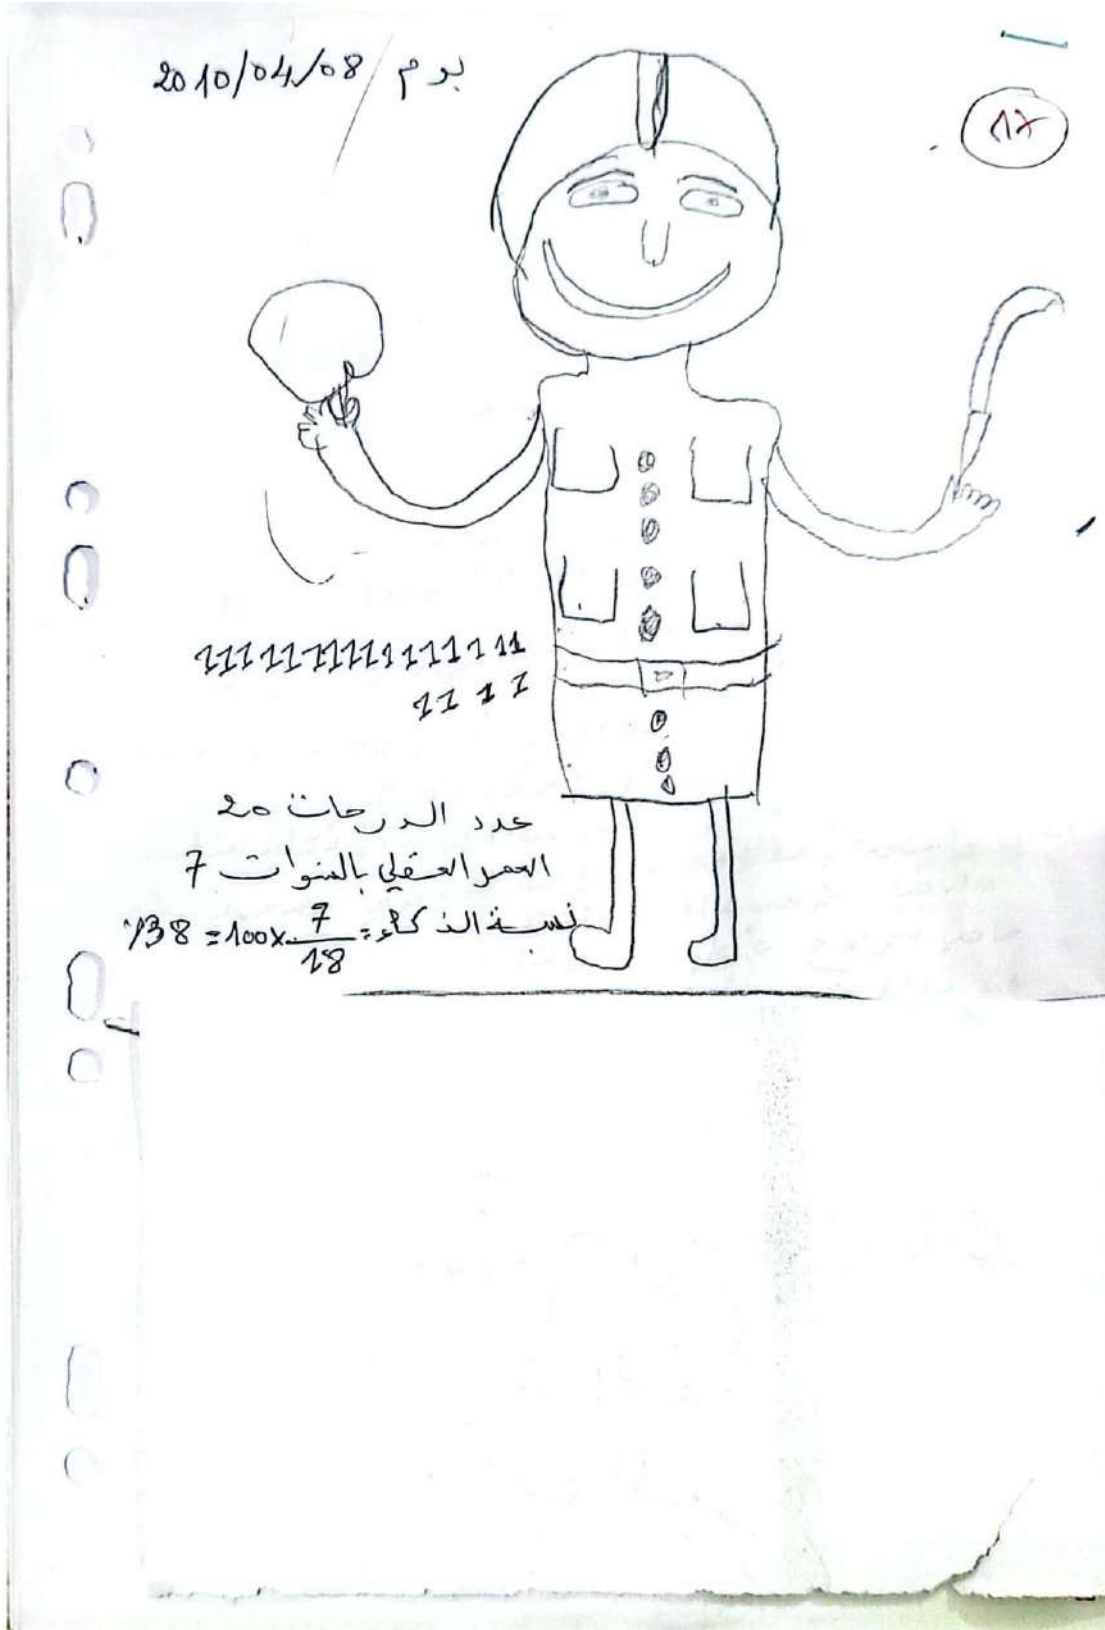 يوم 2010/04/08
17
11111111111111111
1111
عدد الدرجات 20
العمر العقلي بالسنوات 7
نسبة الذكاء = 7/18 ×100 = 38%